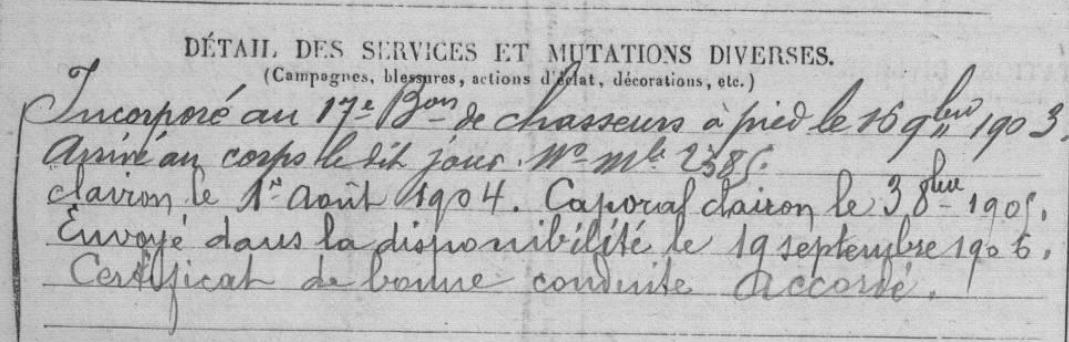 DÉTAIL DES SERVICES ET MUTATIONS DIVERSES.
(Campagnes, blessures, actions d'éclat, décorations, etc.)
Incorporé au 17e Bon de chasseurs à pied le 16 9bre 1903.
Arrivé au corps le dit jour. No Mle 2385.
Clairon le 1er Août 1904. Caporal clairon le 3 8bre 1905.
Envoyé dans la disponibilité le 19 septembre 1906.
Certificat de bonne conduite Accordé.